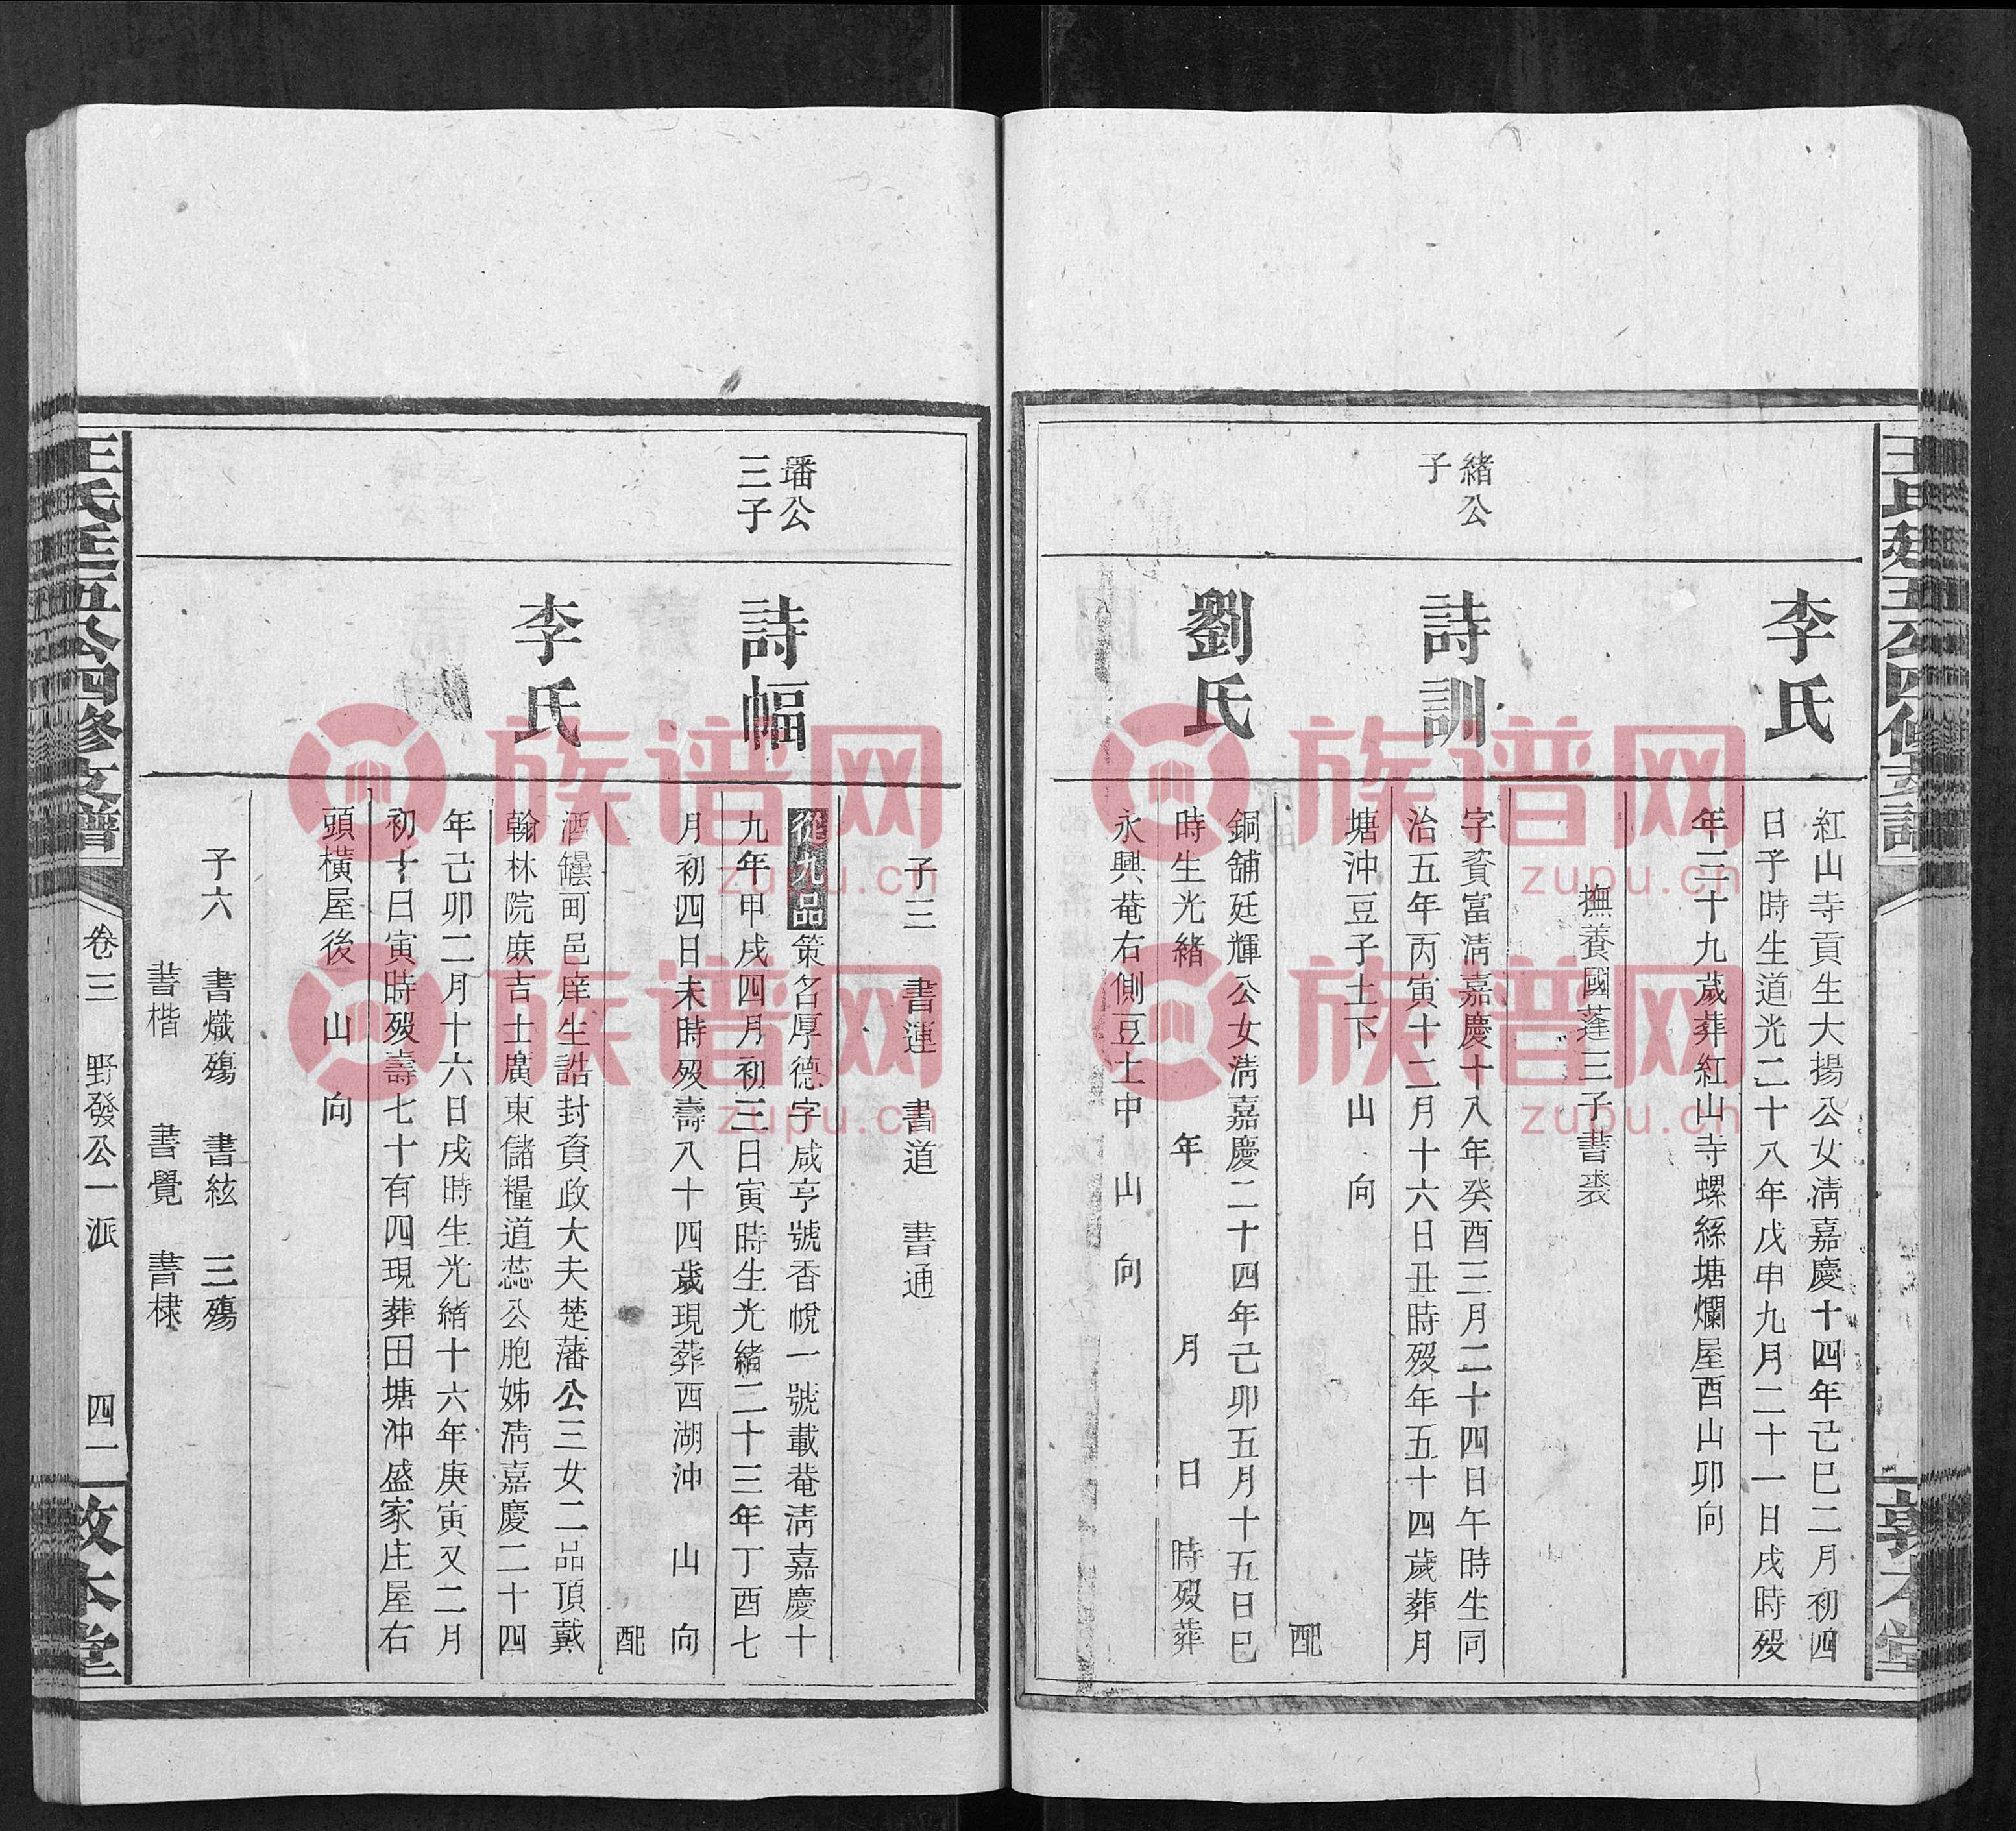 李氏
紅山寺貢生大揚公女淸嘉慶十四年己巳二月初四
日子時生道光二十八年戊申九月二十一日戌時歿
年三十九歲葬紅山寺螺絲塘爛屋酉山卯向
撫養國蓬三子書裘
緒公
子
詩訓
字資富淸嘉慶十八年癸酉三月二十四日午時生同
治五年丙寅十二月十六日丑時歿年五十四歲葬月
塘沖豆子土下 山 向
配
劉氏
銅舖廷輝公女淸嘉慶二十四年己卯五月十五日巳
時生光緒 年 月 日 時歿葬
永興菴右側豆土中 山 向
子三 書蓮 書道 書通
璠公
三子
詩幅
從九品策名厚德字咸亨號香帨一號載菴淸嘉慶十
九年甲戌四月初三日寅時生光緒二十三年丁酉七
月初四日未時歿壽八十四歲現葬西湖沖 山 向
配
李氏
酒罎町邑庠生誥封資政大夫楚藩公三女二品頂戴
翰林院庶吉士廣東儲糧道蕊公胞姊淸嘉慶二十四
年己卯二月十六日戌時生光緒十六年庚寅又二月
初十日寅時歿壽七十有四現葬田塘沖盛家庄屋右
頭橫屋後 山 向
子六 書熾殤 書絃 三殤
書楷 書覺 書棣
王氏廷五公四修支譜
卷三 野發公一派
四一
敦本堂
族谱网
zupu.cn
族谱网
zupu.cn
族谱网
zupu.cn
族谱网
zupu.cn